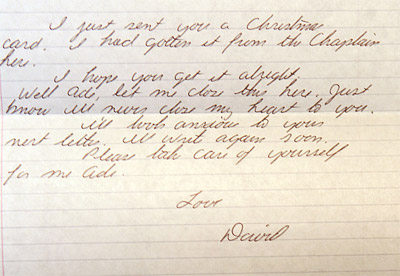 I just sent you a Christmas
card. I had gotten it from the Chaplain
here.
I hope you get it alright.
Well Ade, let me close this here. Just
know I'll never close my heart to you.
I'll look anxious to your
next letter. I'll write again soon.
Please take care of yourself
for me Ade.
Love
David